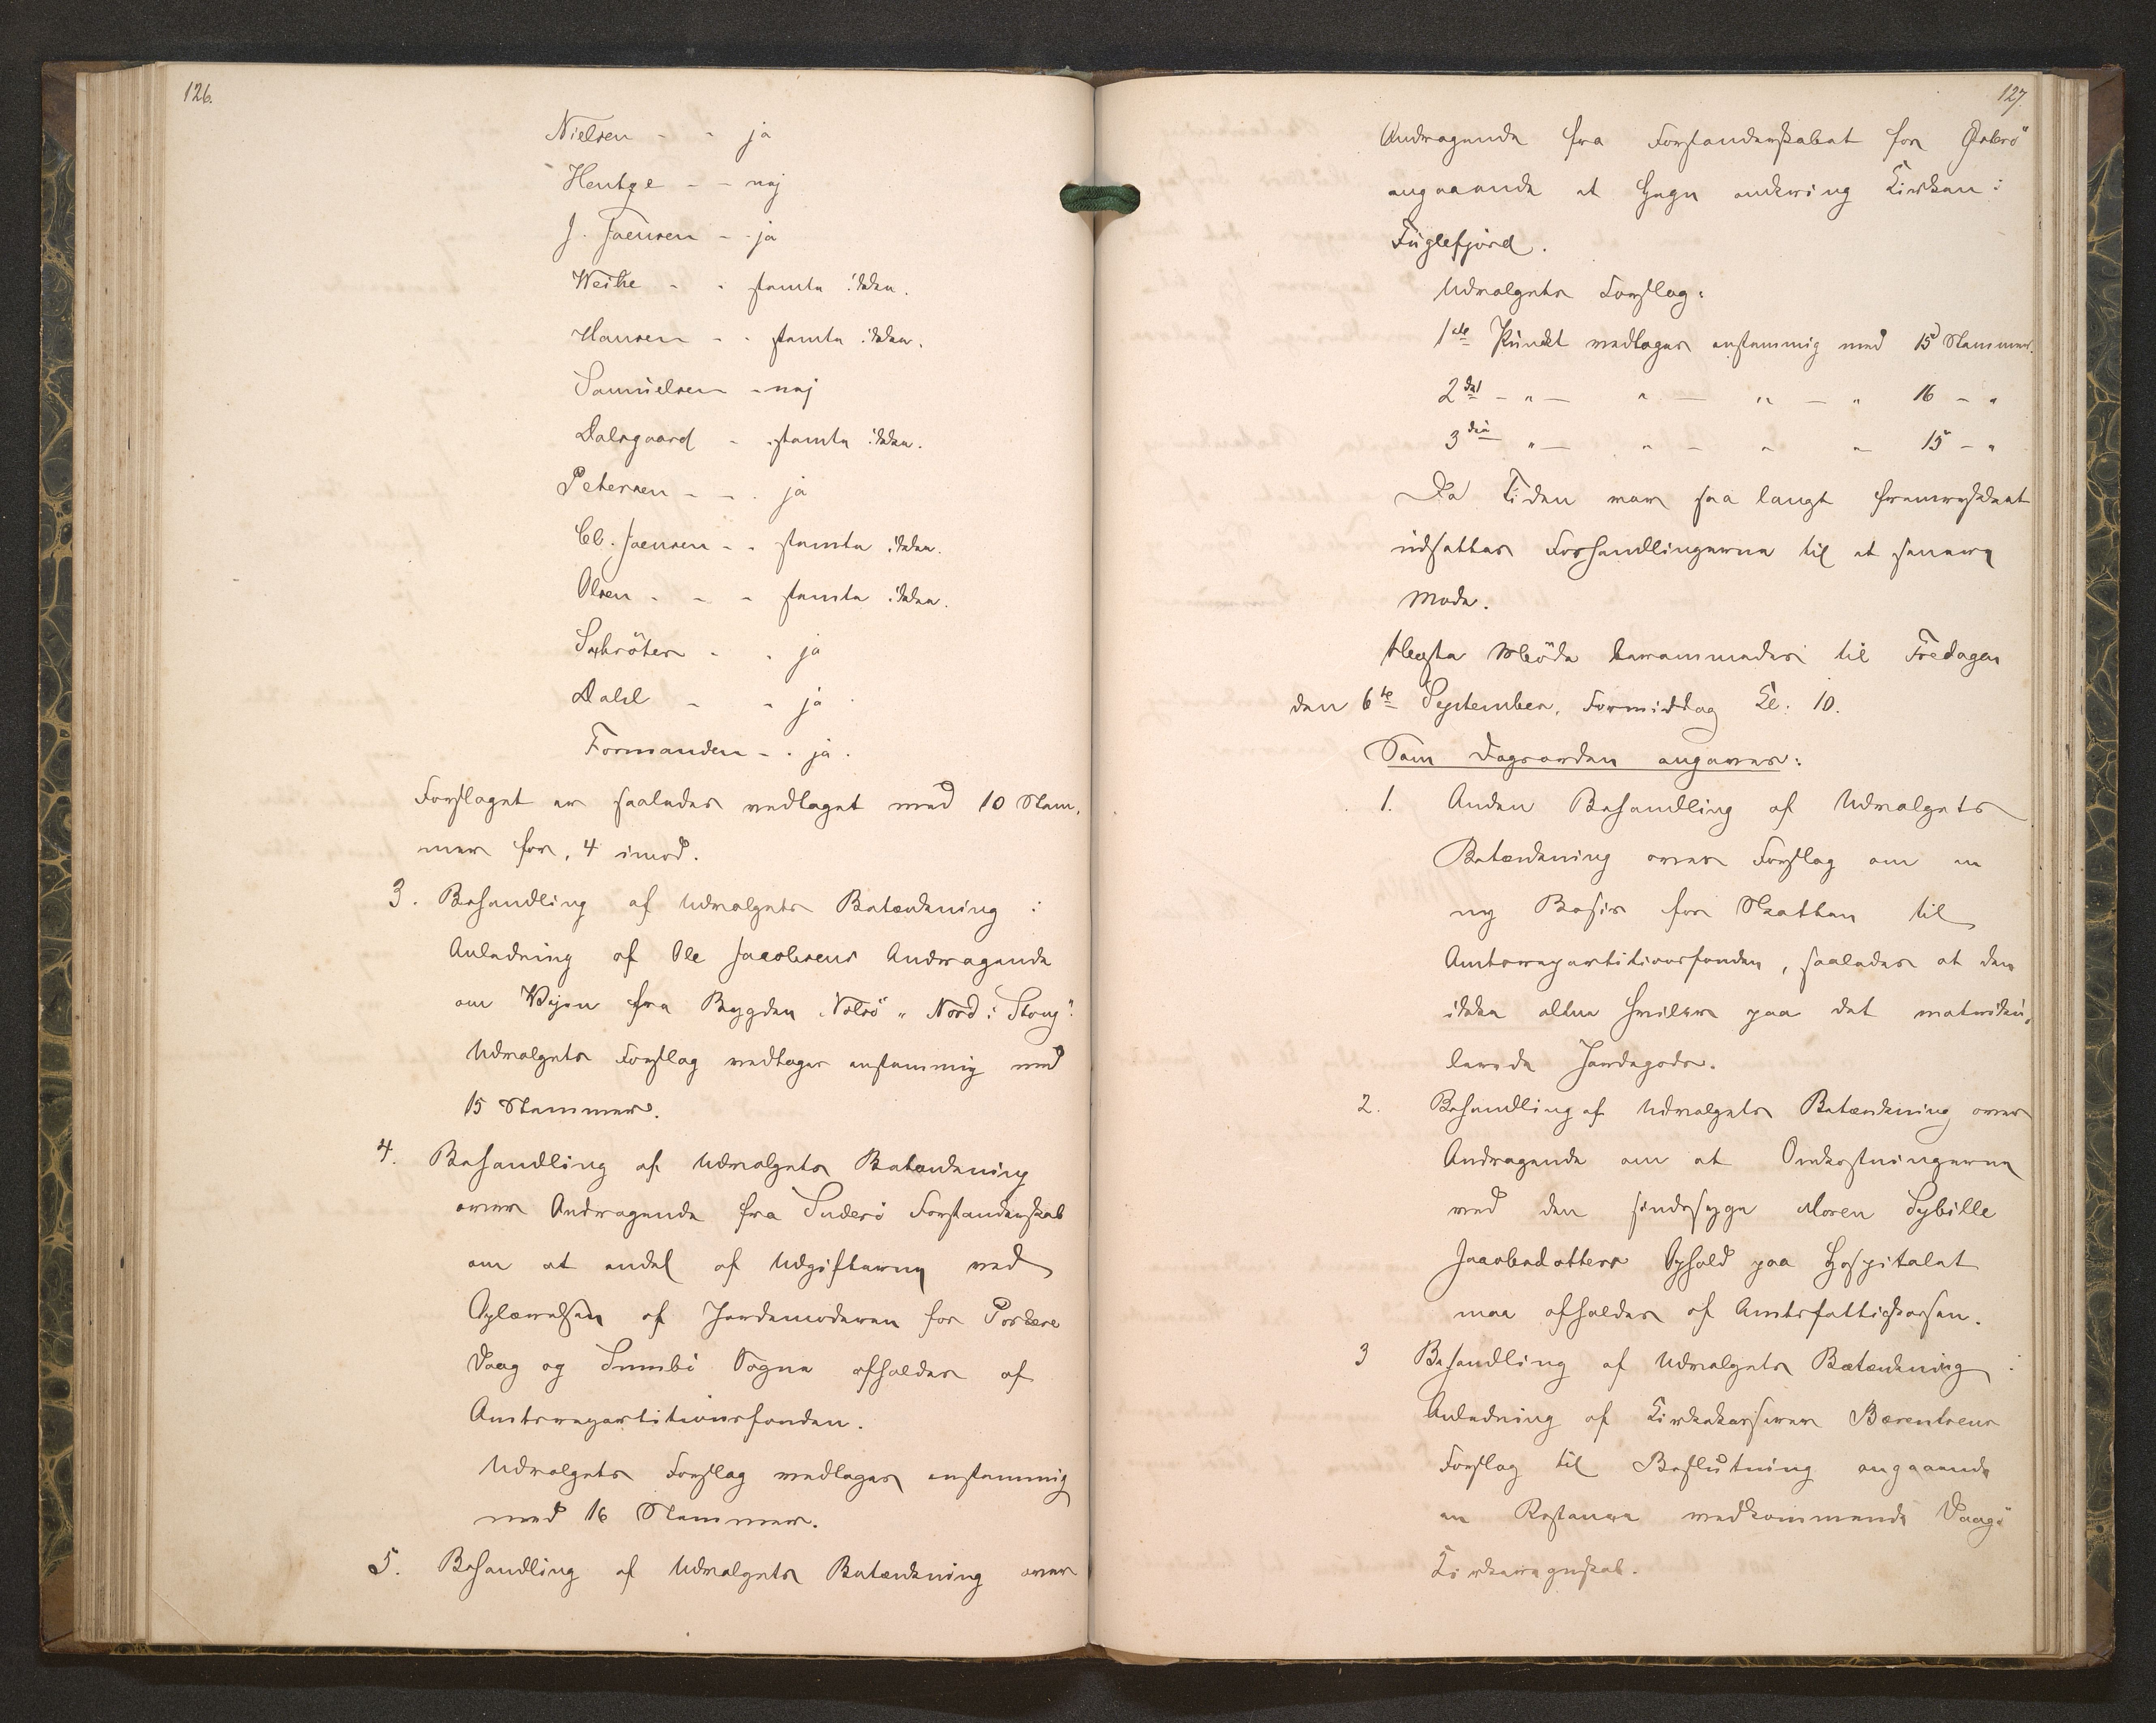 126.
Nielsen - - ja
Hentze - - nej
J. Joensen - - ja
Weihe - - stemte ikke.
Hansen - - stemte ikke.
Samuelsen - nej
Dalsgaard - stemte ikke.
Petersen - - - ja
Cl. Joensen - - stemte ikke.
Olsen - - - stemte ikke.
Schröter - - ja
Dahl - - ja
Formanden - - ja.
Forslaget er saaledes vedtaget med 10 Stem-
mer for, 4 imod.
3. Behandling af Udvalgets Betænkning i
Anledning af Ole Jacobsens Andragende
om Vejen fra Bygden Nolsö "Nord i Stong".
Udvalgets Forslag vedtoges enstemmig med
15 Stemmer.
4. Behandling af Udvalgets Betænkning
over Andragende fra Suderö Forstanderskab
om at endel af Udgifterne ved
Oplærelsen af Jordemoderen for Porkere
Vaag og Sumbö Sogne afholdes af
Amtsrepartitionsfonden.
Udvalgets Forslag vedtoges enstemmig
med 16 Stemmer.
5. Behandling af Udvalgets Betænkning over
127.
Andragende fra Forstanderskabet for Østerö
angaaende et Hegn omkring Kirken i
Fuglefjord.
Udvalgets Forslag:
1ste Punkt vedtoges enstemmig med 15 Stemmer.
2det - " - " - " - " 16 - "
3die " - " - " - 15 - "
Da Tiden var saa langt fremrykket
udsattes Forhandlingerne til et senere
Mode.
Næste Möde berammedes til Fredagen
den 6te September, Formiddag Kl. 10.
Som Dagsorden angaves:
1. Anden Behandling af Udvalgets
Betænkning over Forslag om en
ny Basis for Skatten til
Amtsrepartitionsfonden, saaledes at den
ikke alene hviler paa det matriku-
lerede Jordegods.
2. Behandling af Udvalgets Betænkning over
Andragende om at Omkostningerne
ved den sindssyge Maren Sybille
Jacobsdatters Ophold paa Hospitalet
maa afholdes af Amtsfattigkassen.
3 Behandling af Udvalgets Betænkning i
Anledning af Kirkekasserer Bærentsens
Forslag til Beslutning angaaende
en Restance vedkommende Vaagö
Kirkeregnskab.